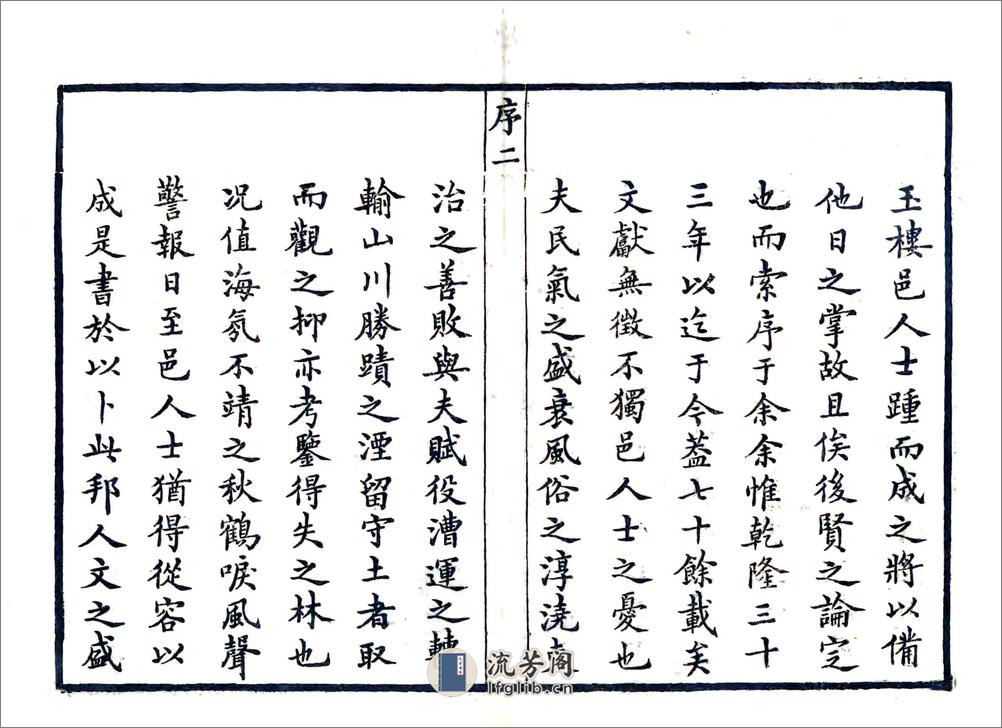 玉樓邑人士踵而成之將以備
他日之掌故且俟後賢之論定
也而索序于余余惟乾隆三十
三年以迄于今蓋七十餘載矣
文獻無徵不獨邑人士之憂也
夫民氣之盛衰風俗之淳澆吏
序二
治之善敗與夫賦役漕運之轉
輸山川勝蹟之湮留守土者取
而觀之抑亦考鑒得失之林也
况值海氛不靖之秋鶴唳風聲
警報日至邑人士猶得從容以
成是書於以卜此邦人文之盛
流芳阁
lfglib.cn